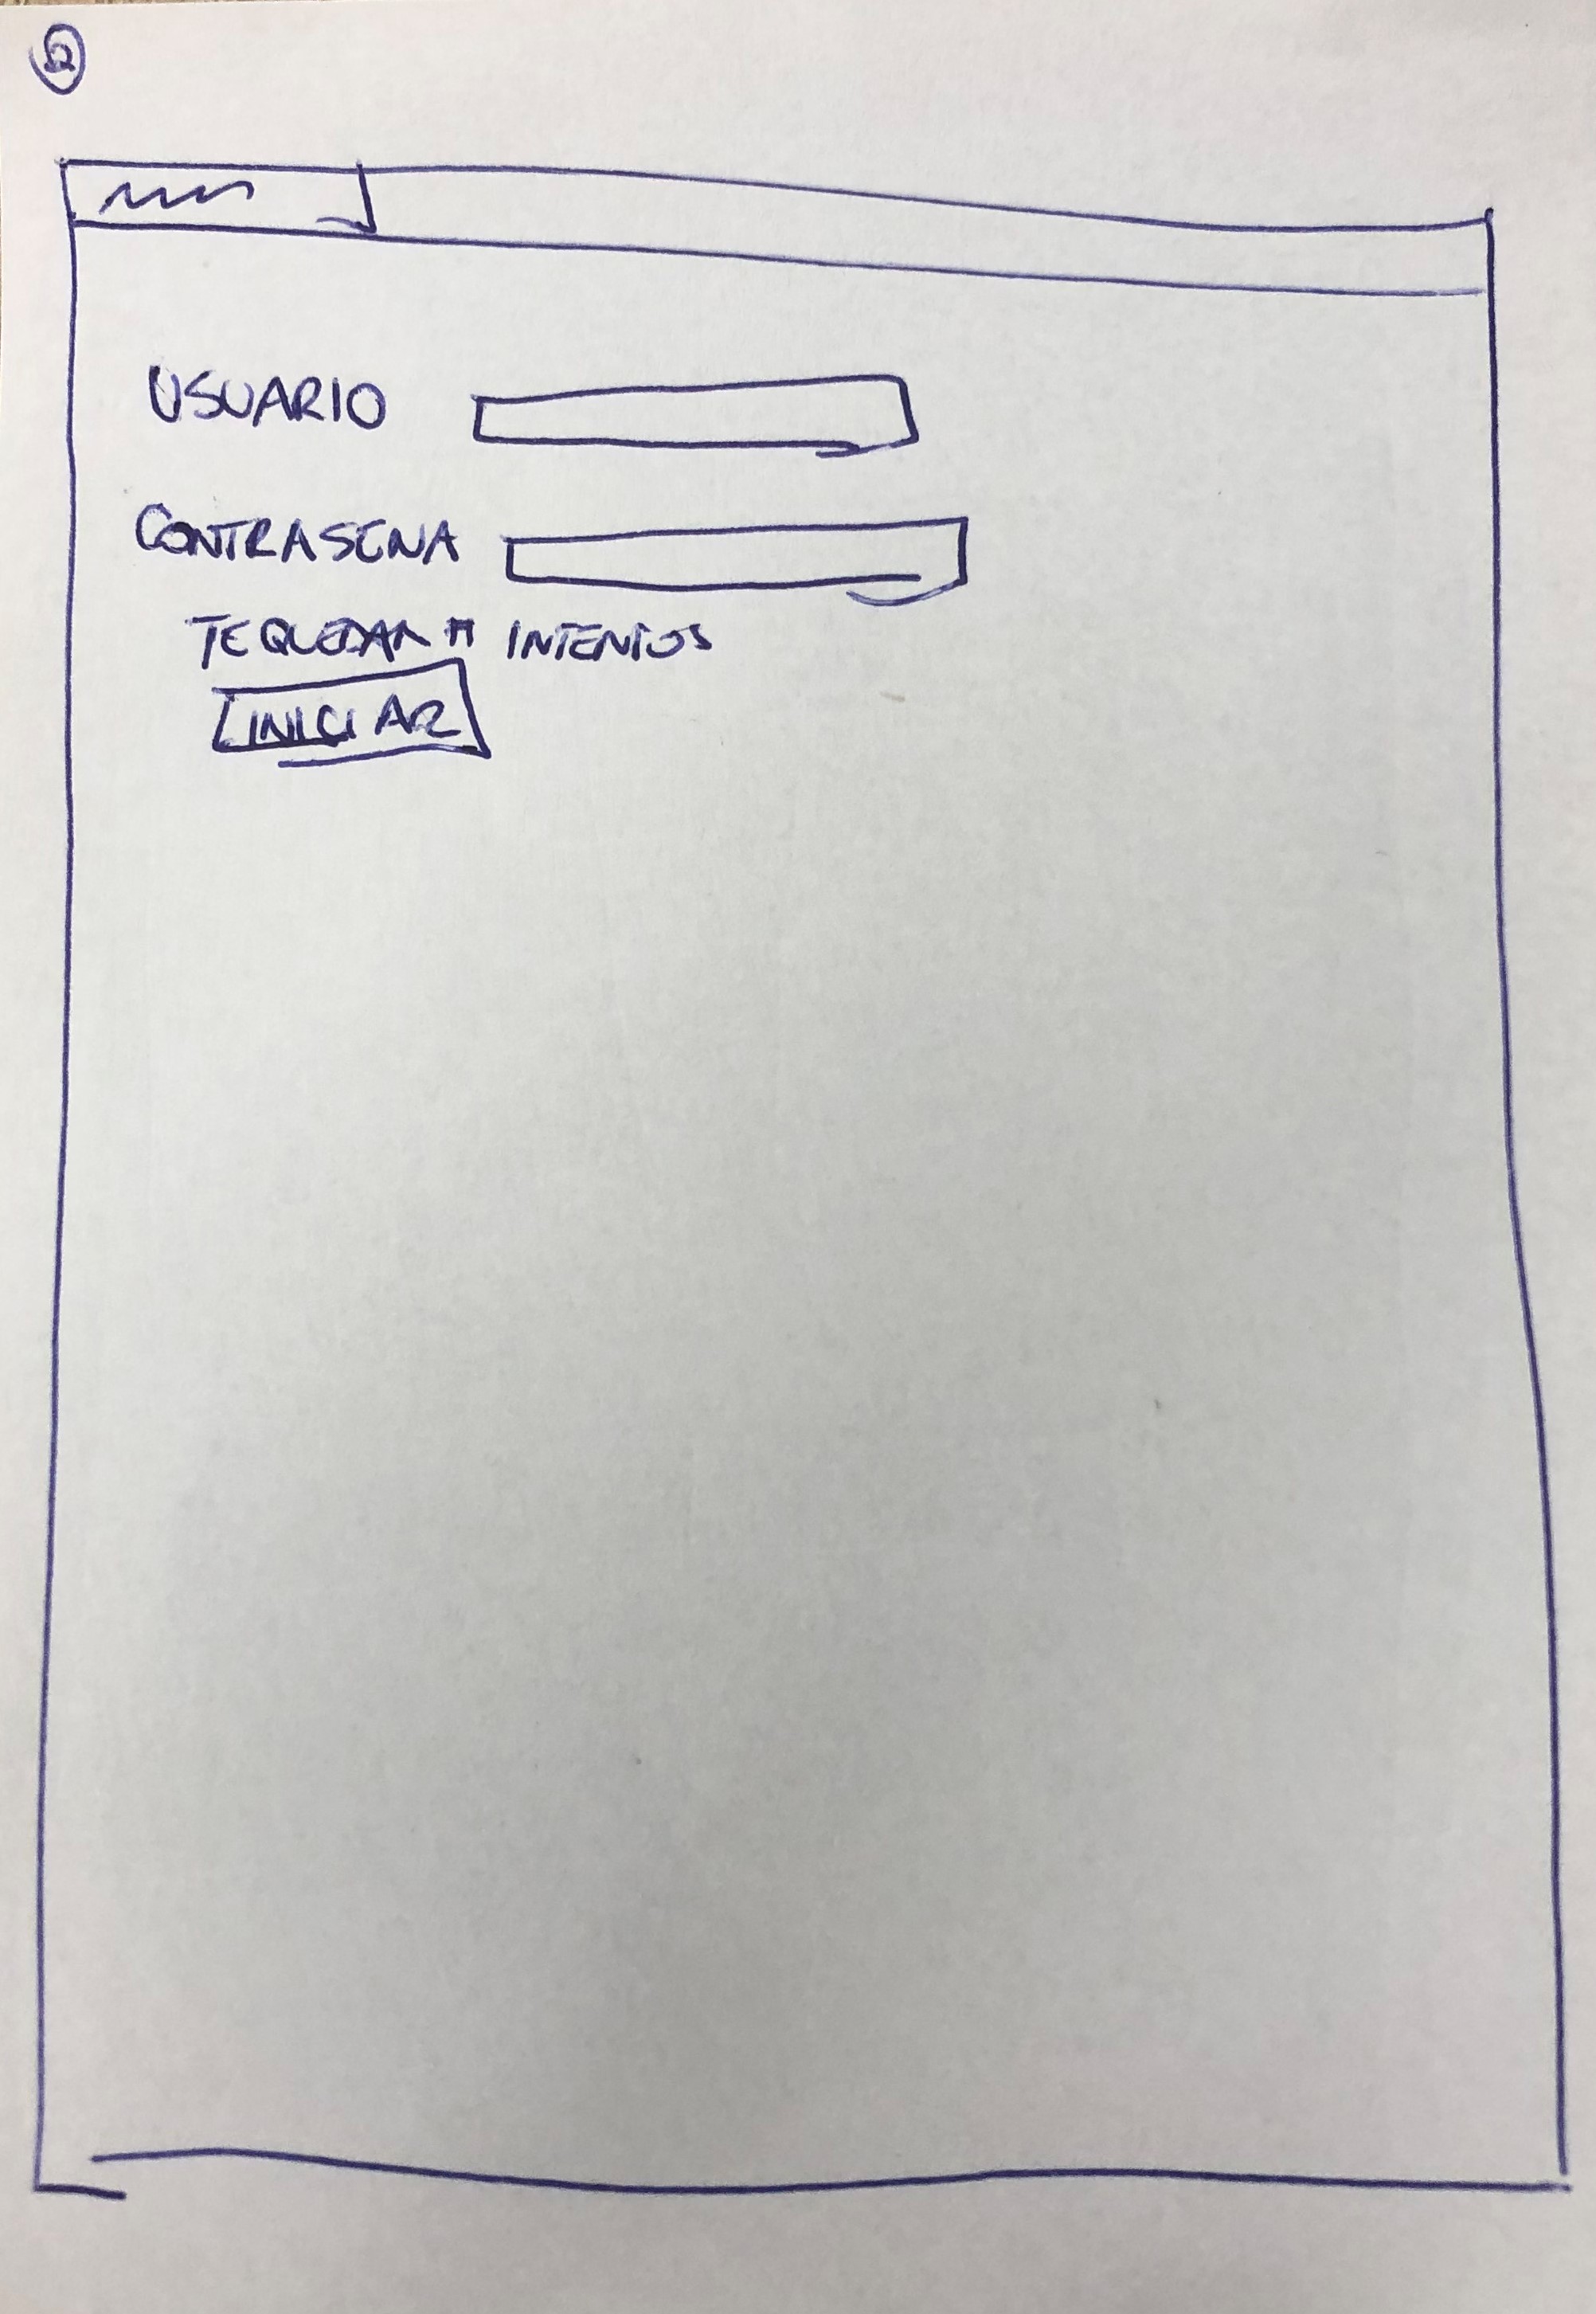 USUARIO
CONTRASENA
TE QUEDAN INTENTOS
INICIAR